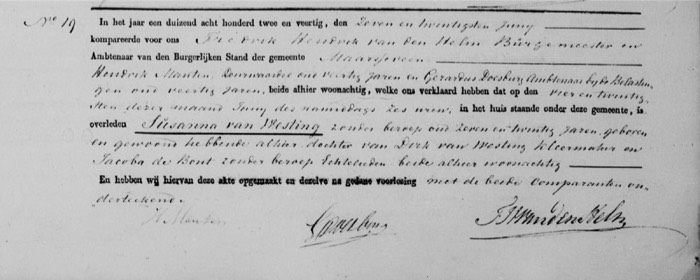 No 19
In het jaar een duizend acht honderd twee en veertig, den zeven en twintigsten Juny
kompareerde voor ons Fredrik Hendrik van den Helm Burgemeester en
Ambtenaar van den Burgerlijken Stand der gemeente Maarsseveen
Hendrik Manten, Deurwaarder oud veertig jaren en Gerardus Doesburg Ambtenaar by de Belastin-
gen oud veertig jaren, beide alhier woonachtig, welke ons verklaard hebben dat op den vier en twintig-
sten dezer maand Juny des namiddags zes uren, in het huis staande onder deze gemeente, is
overleden Susanna van Westing zonder beroep oud zeven en twintig jaren, geboren
en gewoond hebbende alhier dochter van Dirk van Westing Kleermaker en
Jacoba de Bont zonder beroep Echtelieden beide alhier woonachtig
En hebben wij hiervan deze akte opgemaakt en dezelve na gedane voorlezing met de beide Comparanten on-
derteekend.
H Manten GDoesburg FHvandenHelm